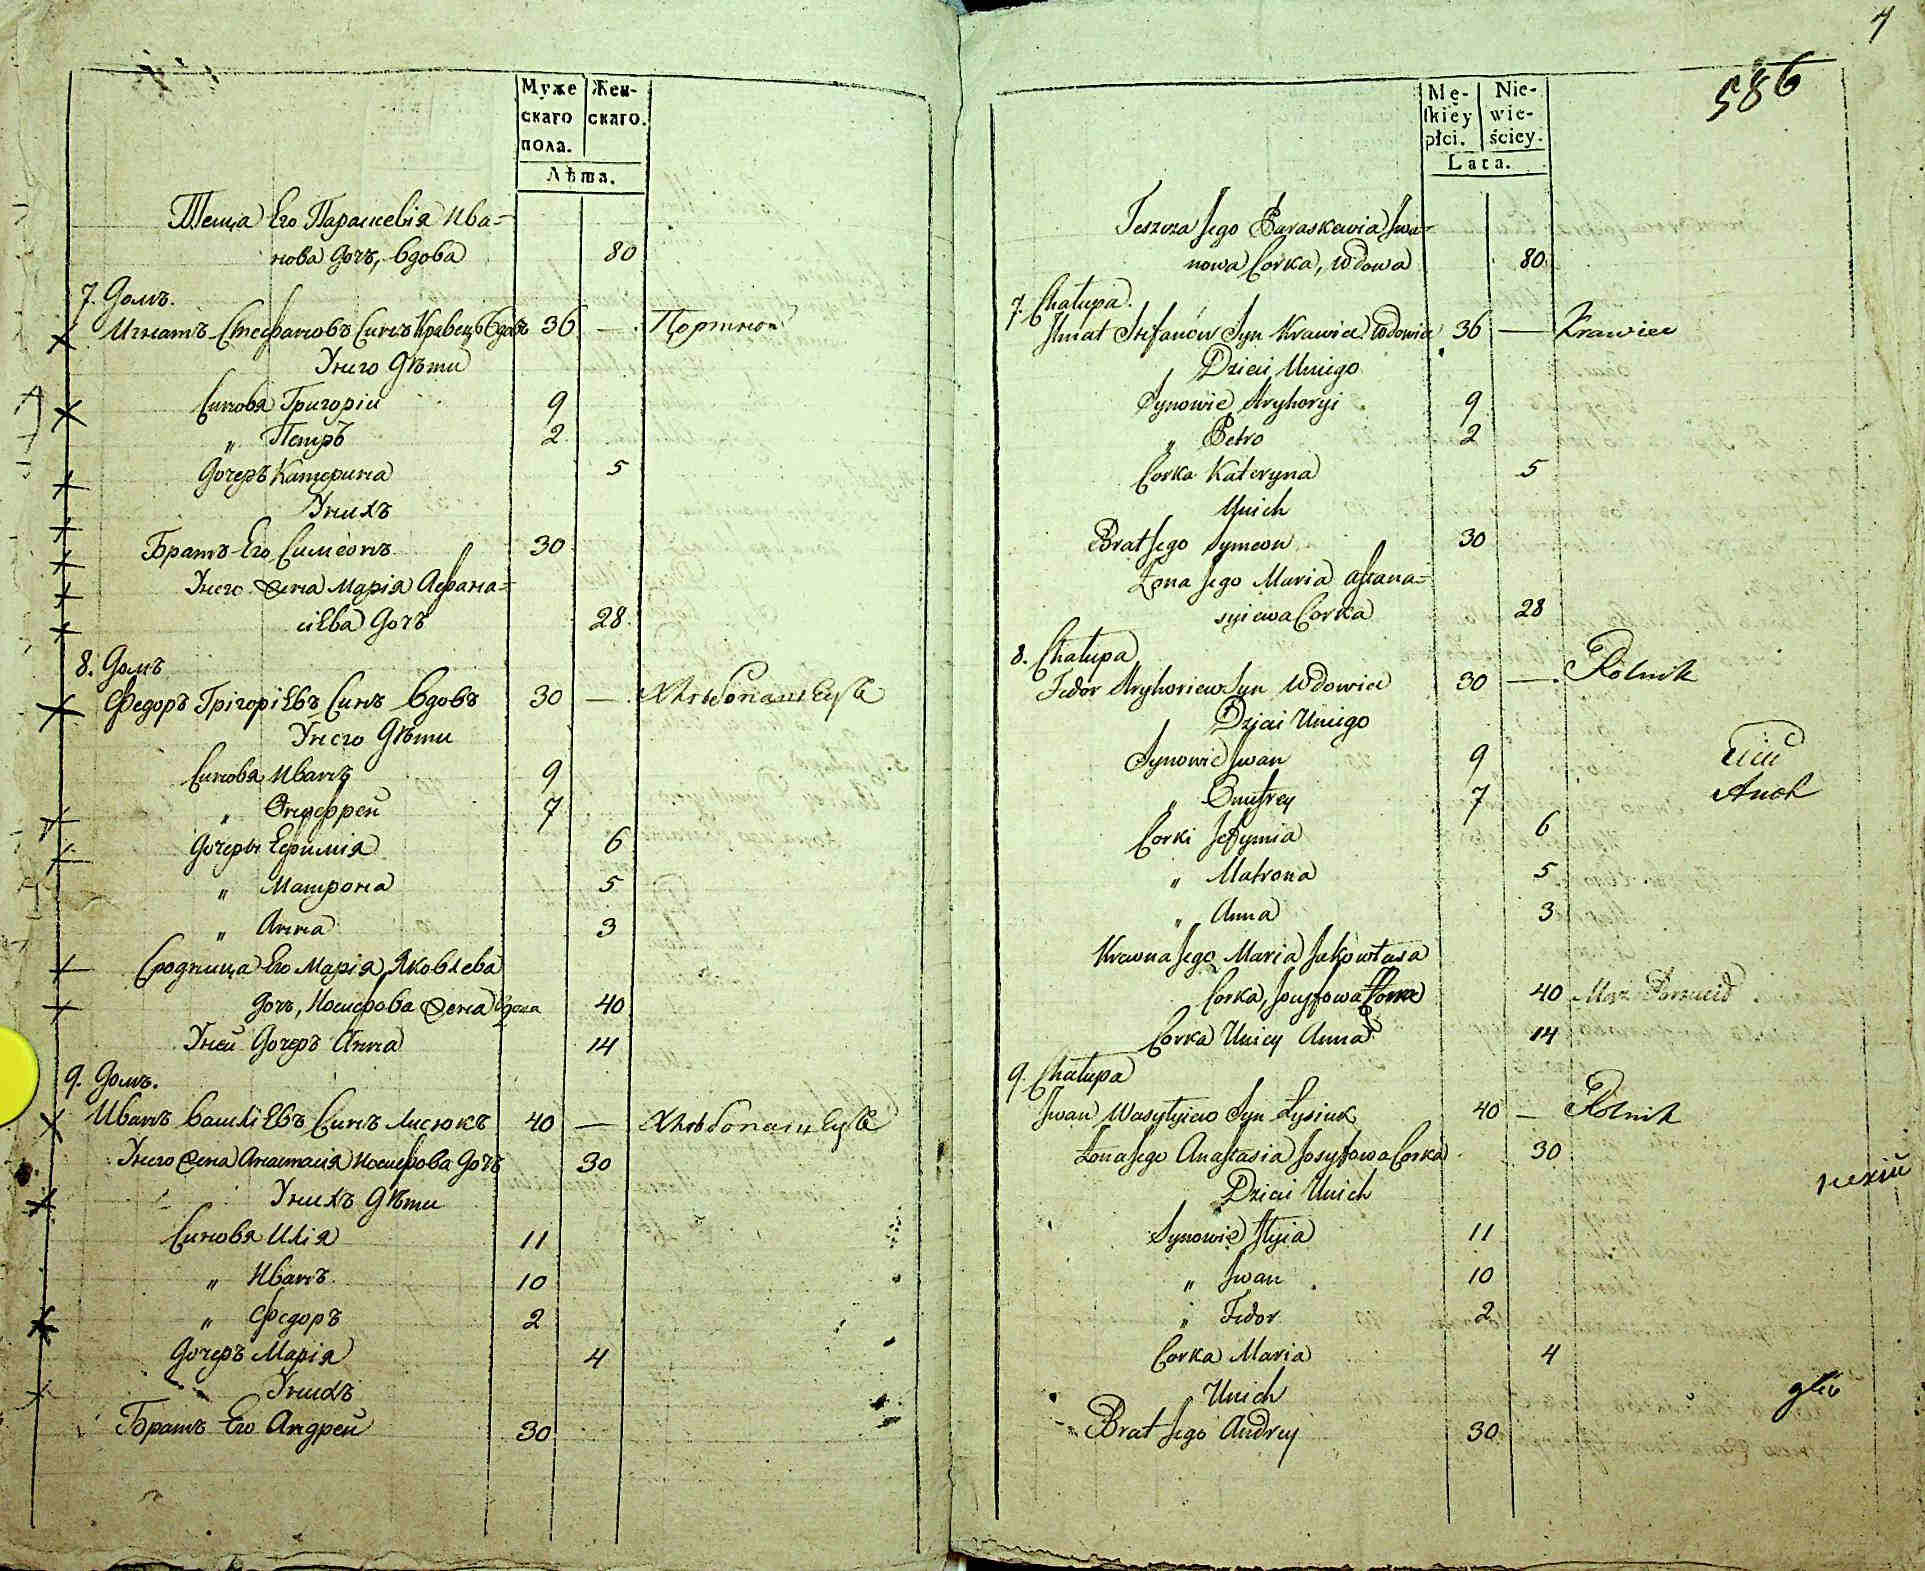 Муже Жен-
скаго скаго.
пола.
Лѣта.
Теща Его Параскевія Ива=
нова Дочъ, Вдова 80
7. Домъ.
Игнатъ Стефановъ Синъ Кравецъ Вдовъ 36 — Портной
У него Дѣти
Синовя Григорій 9
„ Петръ 2
Дочеръ Катерина 5
У нихъ
Братъ Его Симеонъ 30
У него Жена Марія Афана=
сіева Дочъ 28
8. Домъ
Федоръ Григоріевъ Синъ Вдовъ 30 — Хлѣбопашецъ
У него Дѣти
Синовя Иванъ 9
„ Онуфрей 7
Дочеры Ефимія 6
„ Матрона 5
„ Анна 3
Сродница Его Марія Яковлева
Дочъ, Иосифова Жена 40
У ней Дочеръ Анна 14
9. Домъ.
Иванъ Василіевъ Синъ Лисюкъ 40 — Хлѣбопашецъ
У него Жена Анастасія Иосифова Дочъ 30
У нихъ Дѣти
Синовя Илія 11
„ Иванъ 10
„ Федоръ 2
Дочеръ Марія 4
У нихъ
Братъ Его Андрей 30
7
586
Mę- Nie-
ſkiey wie-
płci. ściey.
Lata.
Teszcza Jego Paraskewia Iwa=
nowa Corka, Wdowa 80
7. Chałupa.
Ihnat Stefanów Syn Krawiec Wdowiec 36 — Krawiec
Dzieci Uniego
Synowie Hryhoryi 9
„ Petro 2
Corka Kateryna 5
Unich
Brat Jego Symeon 30
Żona Jego Maria Afana=
syiewa Corka 28
8. Chałupa
Fedor Hryhoriew Syn Wdowiec 30 — Rolnik
Dzieci Uniego
Synowie Iwan 9
„ Onufrey 7
Corki Jefymia 6
„ Matrona 5
„ Anna 3
Krewna Jego Maria Jakowlewa
Corka, Josyfowa Żona 40
Corka Uniey Anna 14
9. Chałupa
Iwan Wasylyiew Syn Łysiuk 40 — Rolnik
Żona Jego Anaſtasia Josyfowa Corka 30
Dzieci Unich
Synowie Ilyia 11
„ Iwan 10
„ Fedor 2
Corka Maria 4
Unich
Brat Jego Andrey 30